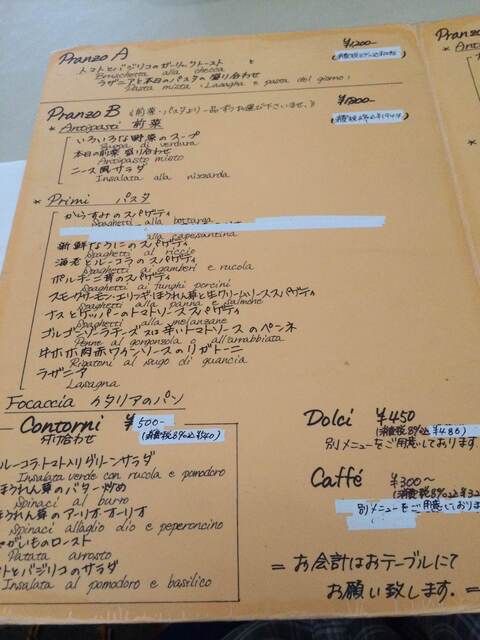 Pranzo A ¥1200-
トマトとバジリコのガーリックトースト
Bruschetta alla checca
ラザニアと本日のパスタの盛り合わせ
Pasta mista : Lasagna e pasta del giorno
Pranzo B (前菜・パスタより一品ずつお選び下さいませ。) ¥1800-
* Antipasti 前菜
いろいろな野菜のスープ
Zuppa di verdura
本日の前菜 盛り合わせ
Antipasto misto
ニース風サラダ
Insalata alla nizzarda
* Primi パスタ
からすみのスパゲティ
Spaghetti alla bottarga
新鮮なうにのスパゲティ
Spaghetti al riccio
海老とルーコラのスパゲティ
Spaghetti ai gamberi e rucola
ポルチーニ茸のスパゲティ
Spaghetti ai funghi porcini
スモークサーモン・エリンギ・ほうれん草と生クリームソーススパゲティ
Spaghetti alla panna e salmone
ナスとケッパーのトマトソーススパゲティ
Spaghetti alla melanzane
ゴルゴンゾーラチーズ又は辛いトマトソースのペンネ
Penne al gorgonzola o all'arrabbiata
牛ホホ肉赤ワインソースのリガトーニ
Rigatoni al sugo di guancia
ラザニア
Lasagna
Focaccia イタリアのパン
Contorni ¥500-
付け合わせ (消費税8%込 ¥540)
ルーコラ・トマト入りグリーンサラダ
Insalata verde con rucola e pomodoro
ほうれん草のバター炒め
Spinaci al burro
ほうれん草のアーリオ・オーリオ
Spinaci all'aglio dio e peperoncino
じゃがいものロースト
Patata arrosto
トマトとバジリコのサラダ
Insalata al pomodoro e basilico
Dolci ¥450
(消費税8%込 ¥486)
別メニューをご用意しております
Caffé ¥300~
別メニューをご用意しておりま
= お会計はおテーブルにて
お願い致します. =